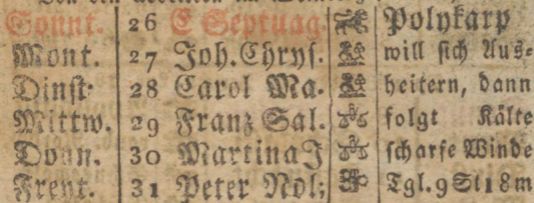 Sonnt. 26 E Septuag. Polykarp
Mont. 27 Joh. Chrys. will sich Aus⸗
Dinst. 28 Carol Ma. heitern, dann
Mittw. 29 Franz Sal. folgt Kälte
Donn. 30 Martina J scharfe Winde
Freyt. 31 Peter Nol; Tgl. 9 St 18 m